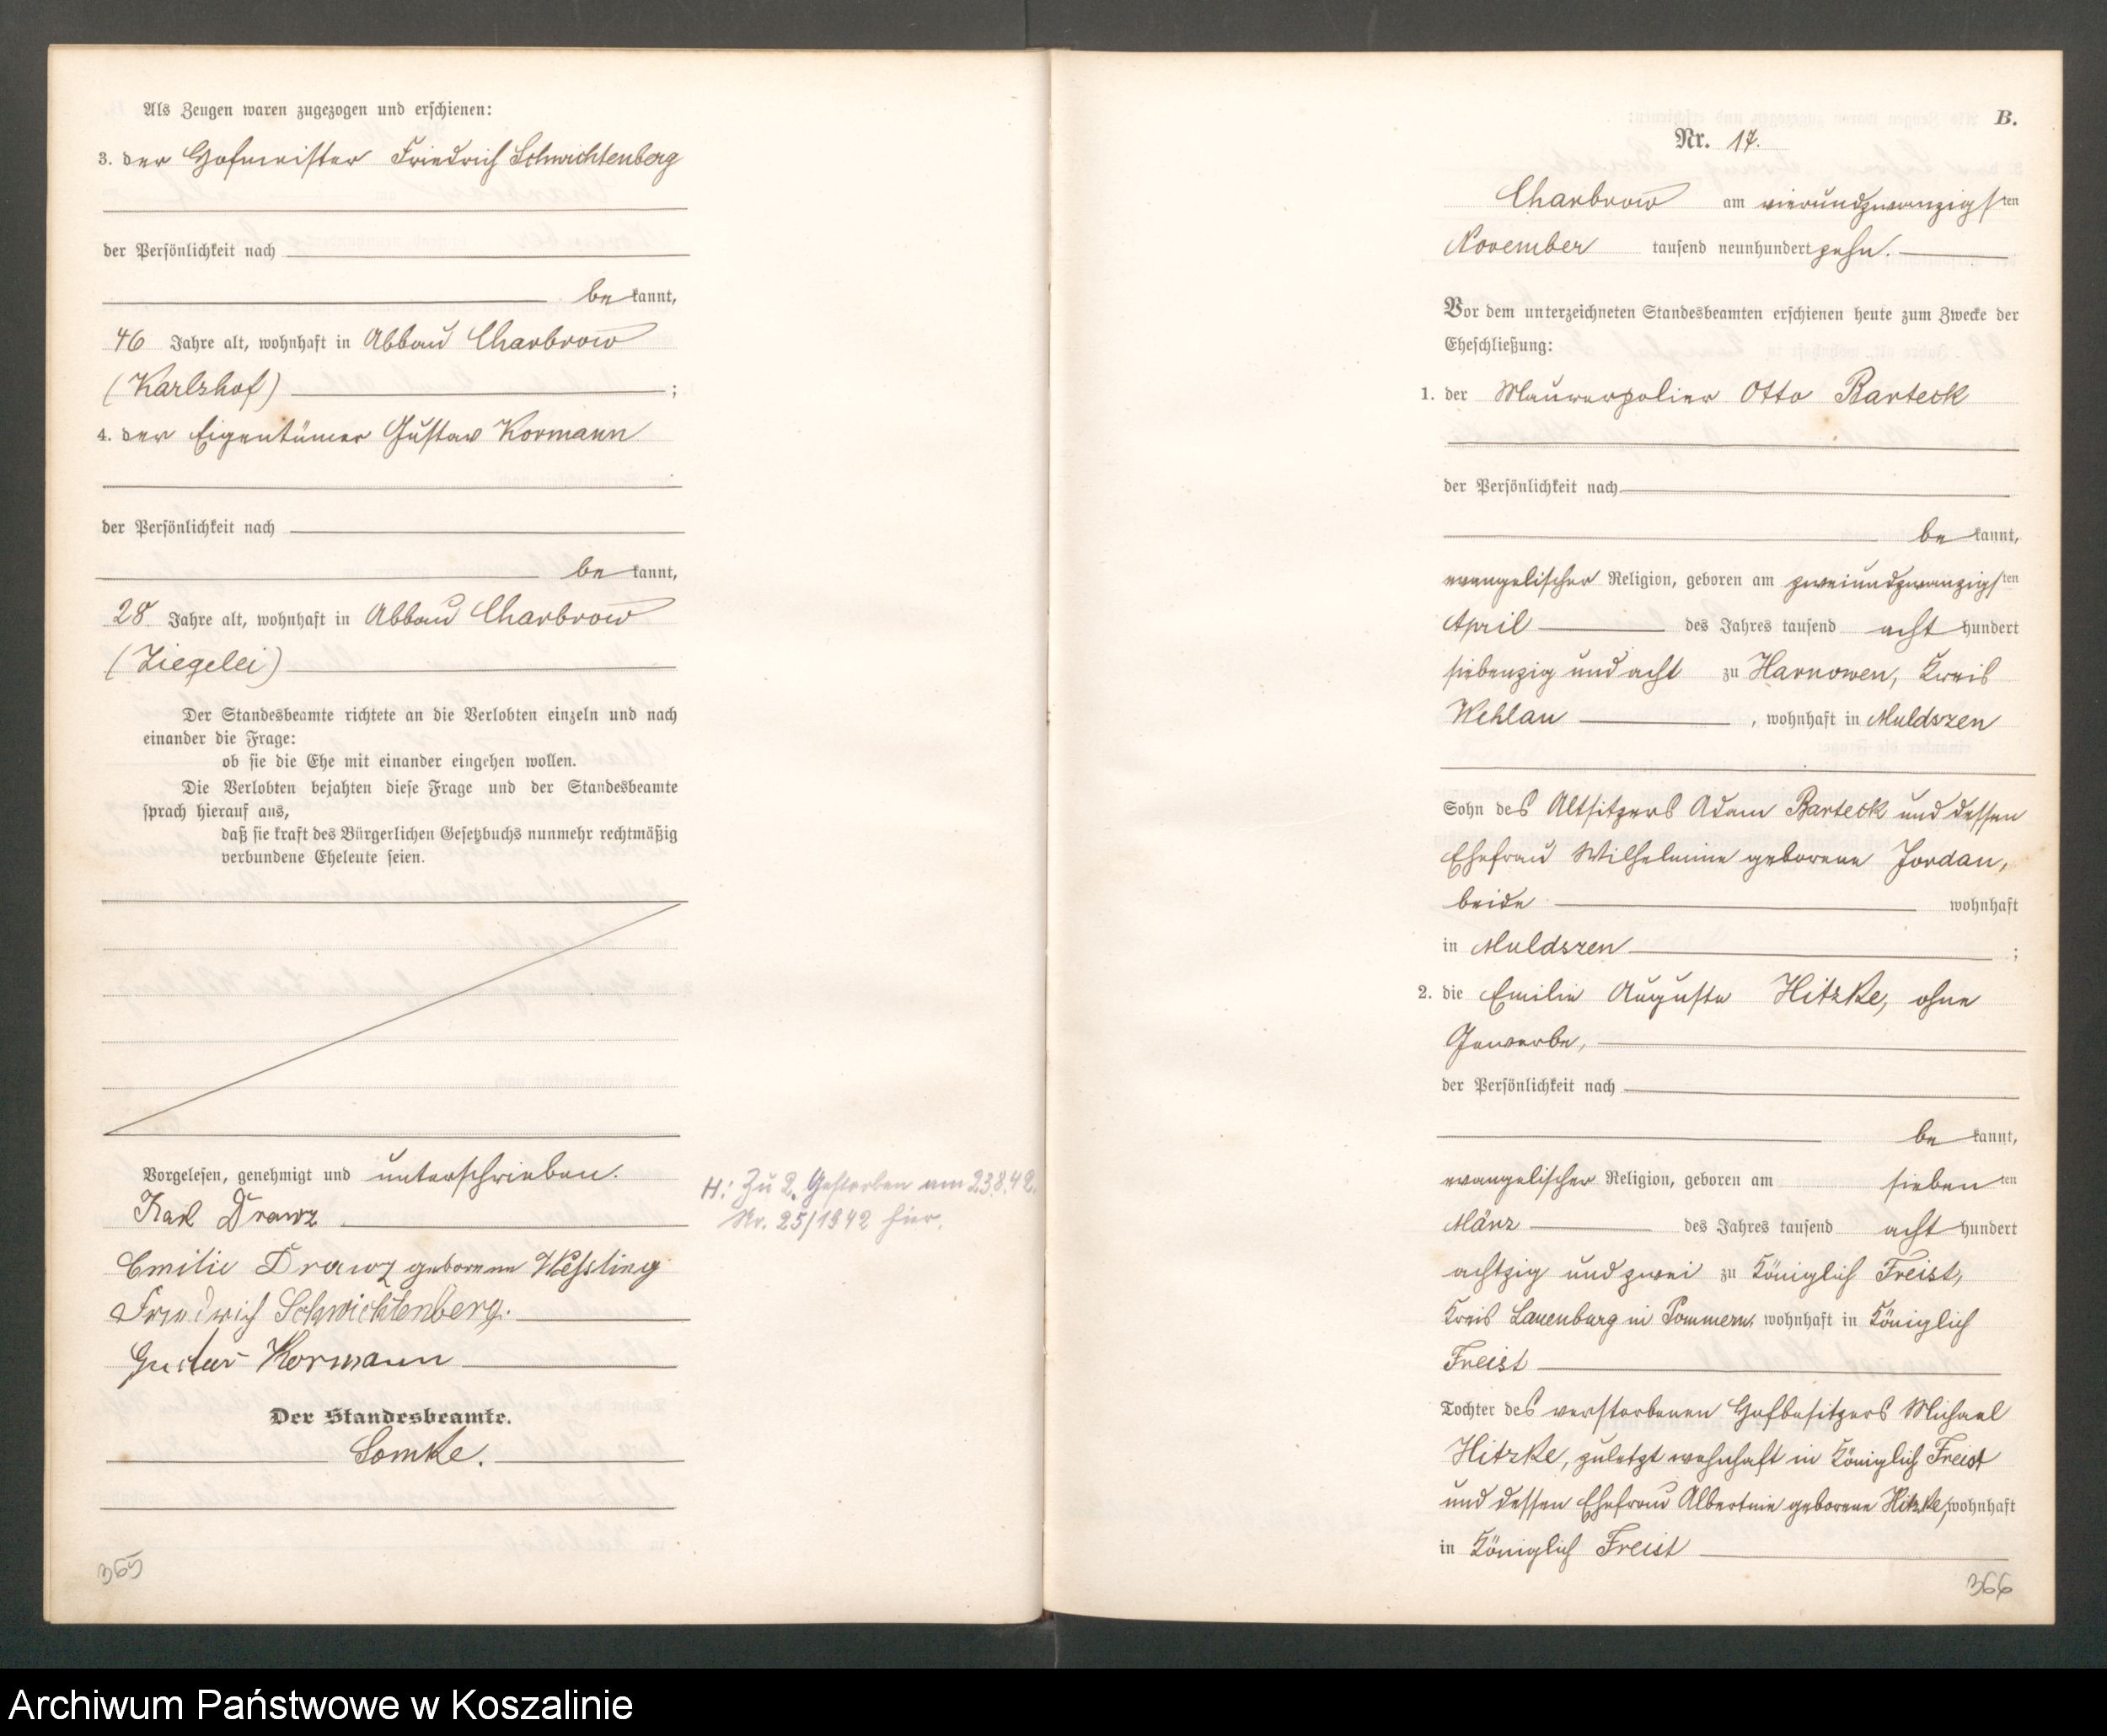 Als Zeugen waren zugezogen und erschienen:
3. der Hofmeister Friedrich Schwichtenberg
der Persönlichkeit nach
be kannt,
46 Jahre alt, wohnhaft in Abbau Charbrow
(Karlshof) ;
4. der Eigentümer Gustav Kormann
der Persönlichkeit nach
be kannt,
28 Jahre alt, wohnhaft in Abbau Charbrow
(Ziegelei)
Der Standesbeamte richtete an die Verlobten einzeln und nach
einander die Frage:
ob sie die Ehe mit einander eingehen wollen.
Die Verlobten bejahten diese Frage und der Standesbeamte
sprach hierauf aus,
daß sie kraft des Bürgerlichen Gesetzbuchs nunmehr rechtmäßig
verbundene Eheleute seien.
Vorgelesen, genehmigt und unterschrieben.
Karl Drawz
Emilie Drawz geborene Wessling
Friedrich Schwichtenberg.
Gustav Kormann
Der Standesbeamte.
Lomke.
365
H: Zu 2. Gestorben am 23.8.42.
Nr. 25/1942 hier.
B.
Nr. 17.
Charbrow am vierundzwanzigsten
November tausend neunhundert zehn.
Vor dem unterzeichneten Standesbeamten erschienen heute zum Zwecke der
Eheschließung:
1. der Maurerpolier Otto Barteck
der Persönlichkeit nach
be kannt,
evangelischer Religion, geboren am zweiundzwanzigsten
April des Jahres tausend acht hundert
siebenzig und acht zu Harnowen, Kreis
Wehlau , wohnhaft in Muldszen
Sohn des Altsitzers Adam Barteck und dessen
Ehefrau Wilhelmine geborene Jordan,
beide wohnhaft
in Muldszen ;
2. die Emilie Auguste Hitzke, ohne
Gewerbe,
der Persönlichkeit nach
be kannt,
evangelischer Religion, geboren am siebenten
März des Jahres tausend acht hundert
achtzig und zwei zu Königlich Freist,
Kreis Lauenburg in Pommern, wohnhaft in Königlich
Freist
Tochter des verstorbenen Hofbesitzers Michael
Hitzke, zuletzt wohnhaft in Königlich Freist
und dessen Ehefrau Albertine geborene Hitzke, wohnhaft
in Königlich Freist
366
Archiwum Państwowe w Koszalinie